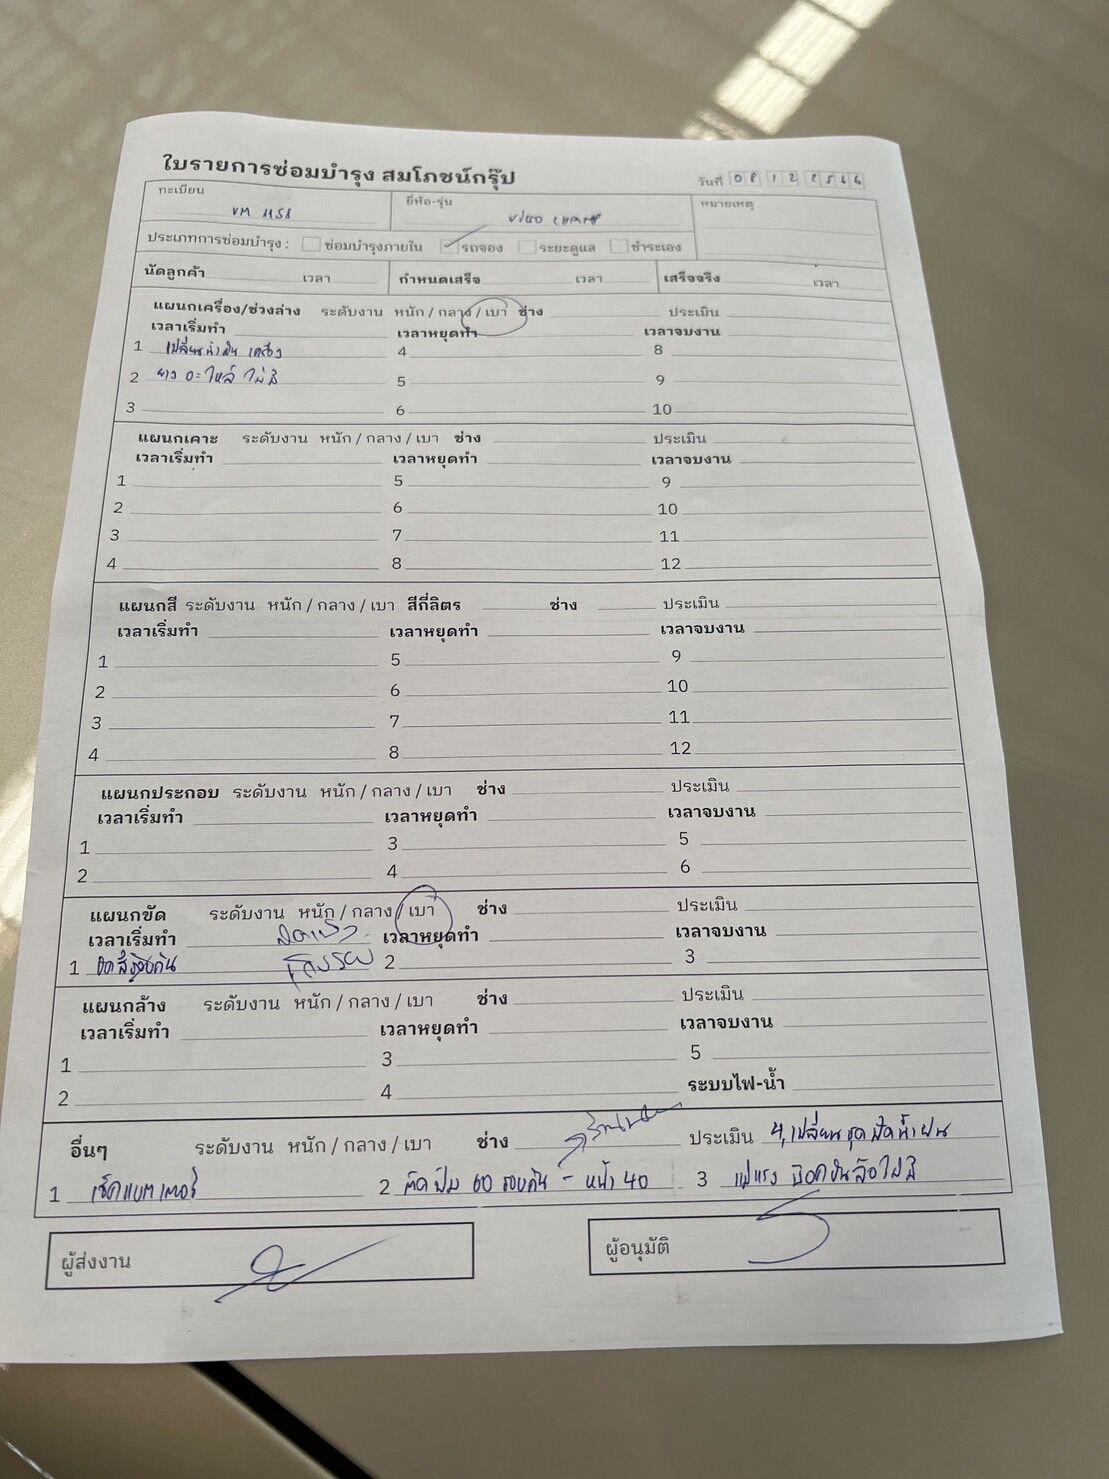 ใบรายการซ่อมบำรุง สมโภชน์กรุ๊ป
วันที่ 08 12 2566
ทะเบียน ยี่ห้อ-รุ่น หมายเหตุ
ขม 1158
ประเภทการซ่อมบำรุง : ซ่อมบำรุงภายใน รถจอง ระยะดูแล ชำระเอง
นัดลูกค้า เวลา กำหนดเสร็จ เวลา เสร็จจริง เวลา
แผนกเครื่อง/ช่วงล่าง ระดับงาน หนัก / กลาง / เบา ช่าง ประเมิน
เวลาเริ่มทำ เวลาหยุดทำ เวลาจบงาน
1 เปลี่ยนน้ำมันเครื่อง 4 8
2 ยางอะไหล่ ไม่มี 5 9
3 6 10
แผนกเคาะ ระดับงาน หนัก / กลาง / เบา ช่าง ประเมิน
เวลาเริ่มทำ เวลาหยุดทำ เวลาจบงาน
1 5 9
2 6 10
3 7 11
4 8 12
แผนกสี ระดับงาน หนัก / กลาง / เบา สีกี่ลิตร ช่าง ประเมิน
เวลาเริ่มทำ เวลาหยุดทำ เวลาจบงาน
1 5 9
2 6 10
3 7 11
4 8 12
แผนกประกอบ ระดับงาน หนัก / กลาง / เบา ช่าง ประเมิน
เวลาเริ่มทำ เวลาหยุดทำ เวลาจบงาน
1 3 5
2 4 6
แผนกขัด ระดับงาน หนัก / กลาง / เบา ช่าง ประเมิน
เวลาเริ่มทำ เวลาหยุดทำ เวลาจบงาน
1 ขัดสีรอบคัน 2 3
แผนกล้าง ระดับงาน หนัก / กลาง / เบา ช่าง ประเมิน
เวลาเริ่มทำ เวลาหยุดทำ เวลาจบงาน
1 3 5
2 4 ระบบไฟ-น้ำ
อื่นๆ ระดับงาน หนัก / กลาง / เบา ช่าง ประเมิน 4, เปลี่ยนชุดปัดน้ำฝน
1 เช็คแบตเตอรี่ 2 ติดฟิล์ม 60 รอบคัน - หน้า 40 3 แม่แรง บล็อคขันล้อ ไม่มี
ผู้ส่งงาน ผู้อนุมัติ